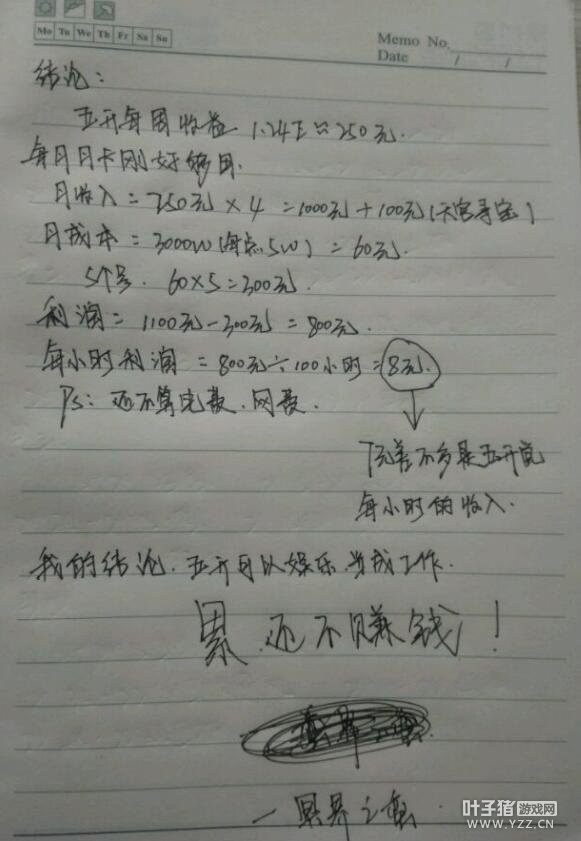 Mo Tu We Th Fr Sa Su
Memo No.
Date / /
结论:
五开每周收益 1.24E≈250元.
每月日卡刚好够用.
月收入=250元×4=1000元+100元(天宫寻宝)
月成本=3000W(每点5W)=60元.
5个号. 60×5=300元.
利润=1100元-300元=800元.
每小时利润=800元÷100小时=8元.
Ps: 还不算电费.网费.
8元差不多是五开党
每小时的收入.
我的结论.五开可以娱乐.当成工作.
累.还不赚钱!
叶子猪 游戏网
WWW.YZZ.CN